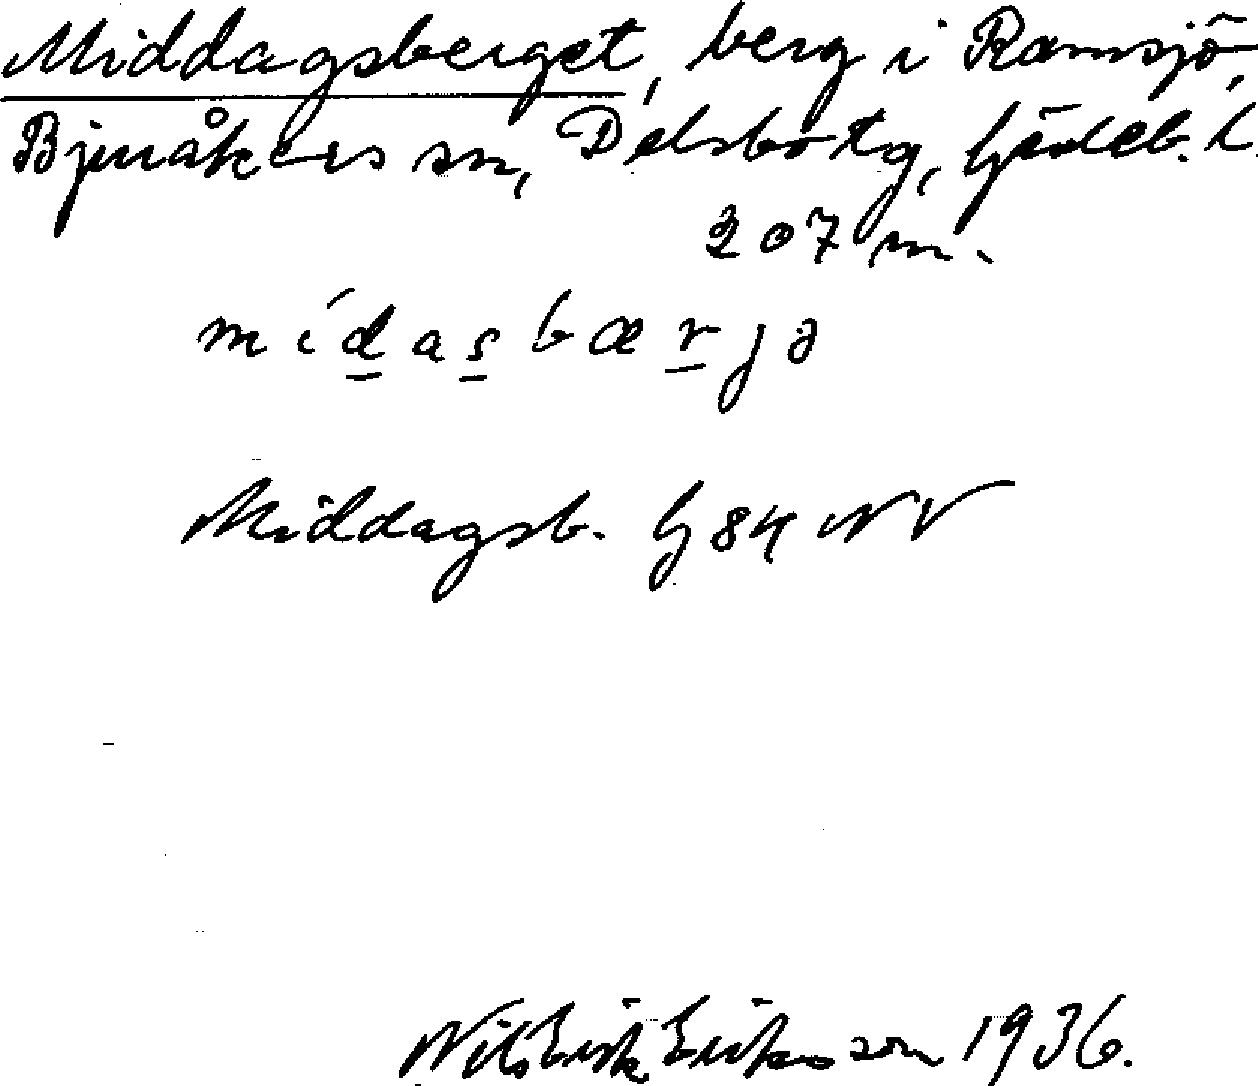 Middagsberget, berg i Ramsjö,
Bjuråkers sn, Delsbo tg, Gävleb. l.
207 m.
mídasbærjə
Middagsb. G 84 NV
Nils Erik Eriksson 1936.